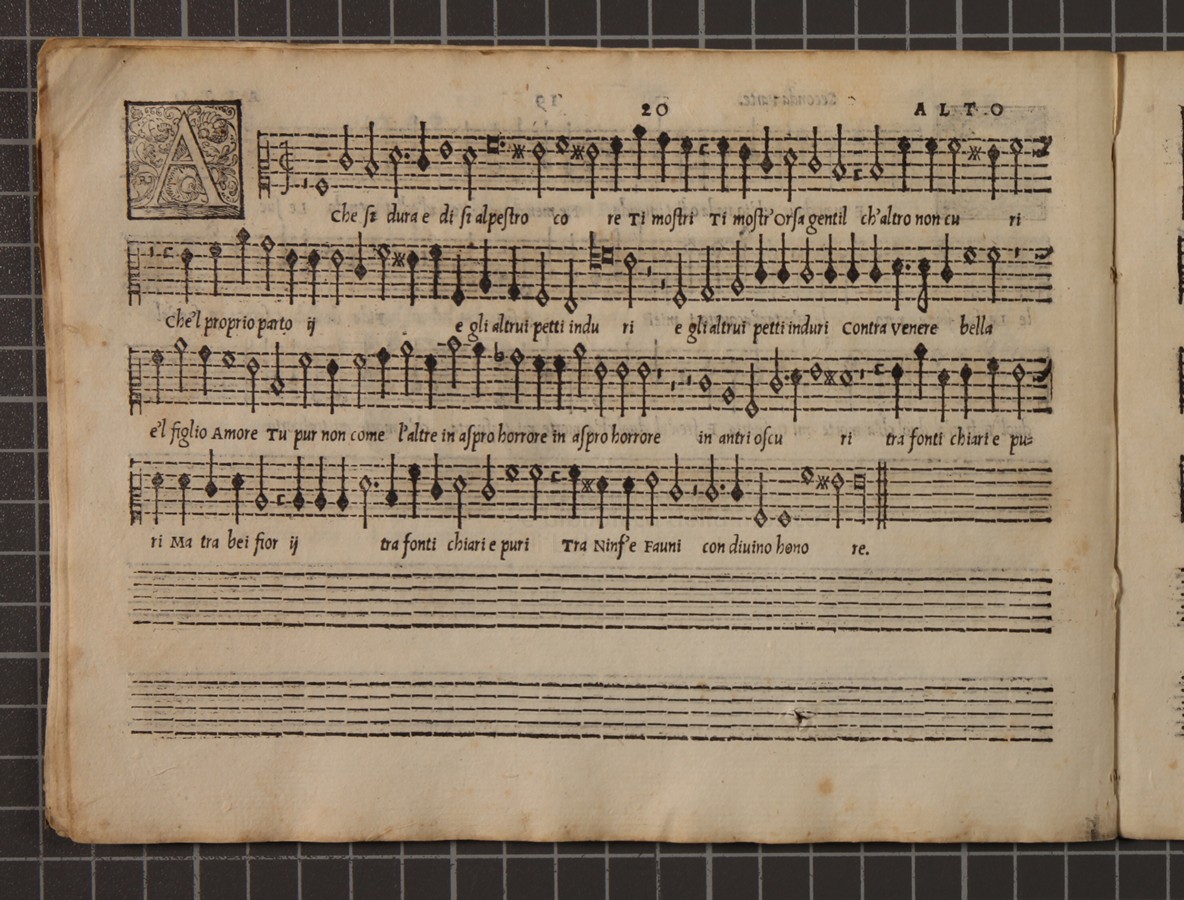 20 ALTO
A Che sì dura e di sì alpestro co re Ti mostri Ti mostr'Orsa gentil ch'altro non cu ri
Che'l proprio parto ij e gli altrui petti indu ri e gli altrui petti induri Contra Venere bella
e'l figlio Amore Tu pur non come l'altre in aspro horrore in aspro horrore in antri oscu ri tra fonti chiari e pu-
ri Ma tra bei fior ij tra fonti chiari e puri Tra Ninf'e Fauni con diuino hono re.